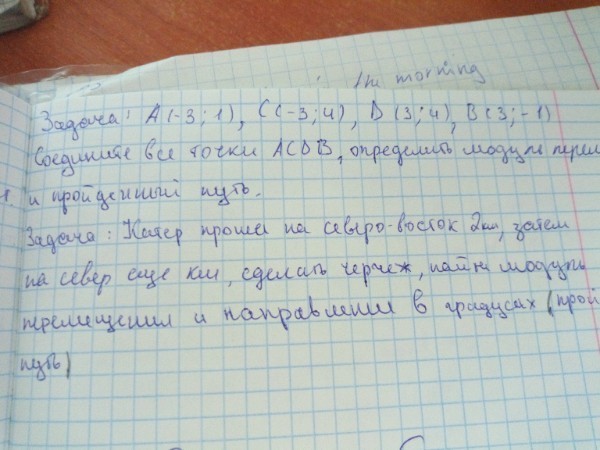 the morning
Задача: А(-3;1), С(-3;4), D(3;4), В(3;-1)
Соедините все точки ACDB, определить модуль перем
и пройденный путь.
Задача: Катер прошел на северо-восток 2км, затем
на север еще км, сделать чертеж, найти модуль
перемещения и направлении в градусах (прой
путь)